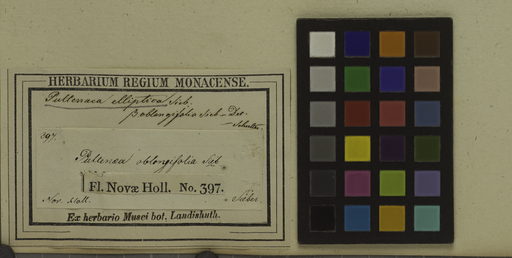 HERBARIUM REGIUM MONACENSE.
Pultenaea elliptica Sieb.
β oblongifolia Sieb – Dec.
Schultes
397.
Pultenaea oblongifolia Sieb
Fl. Novæ Holl. No. 397.
Nov. Holl. Sieber
Ex herbario Musei bot. Landishuth.